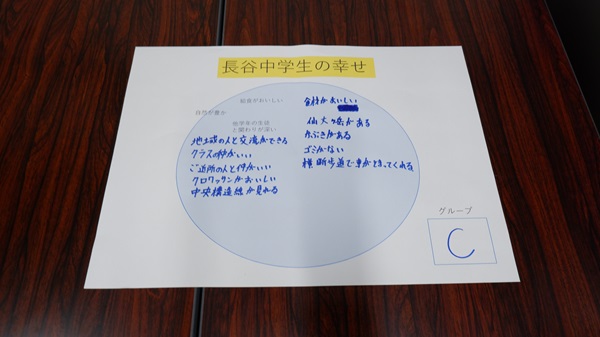 長谷中学生の幸せ
給食がおいしい
自然が豊か
他学年の生徒
と関わりが深い
地土或の人と交流ができる
クラスの仲がいい
ご近所の人と仲がいい
クロワッサンがおいしい
中央構造線が見れる
食材がおいしい
仙丈ヶ岳がある
ゴミがない
横断歩道で車がとまってくれる
グループ
C